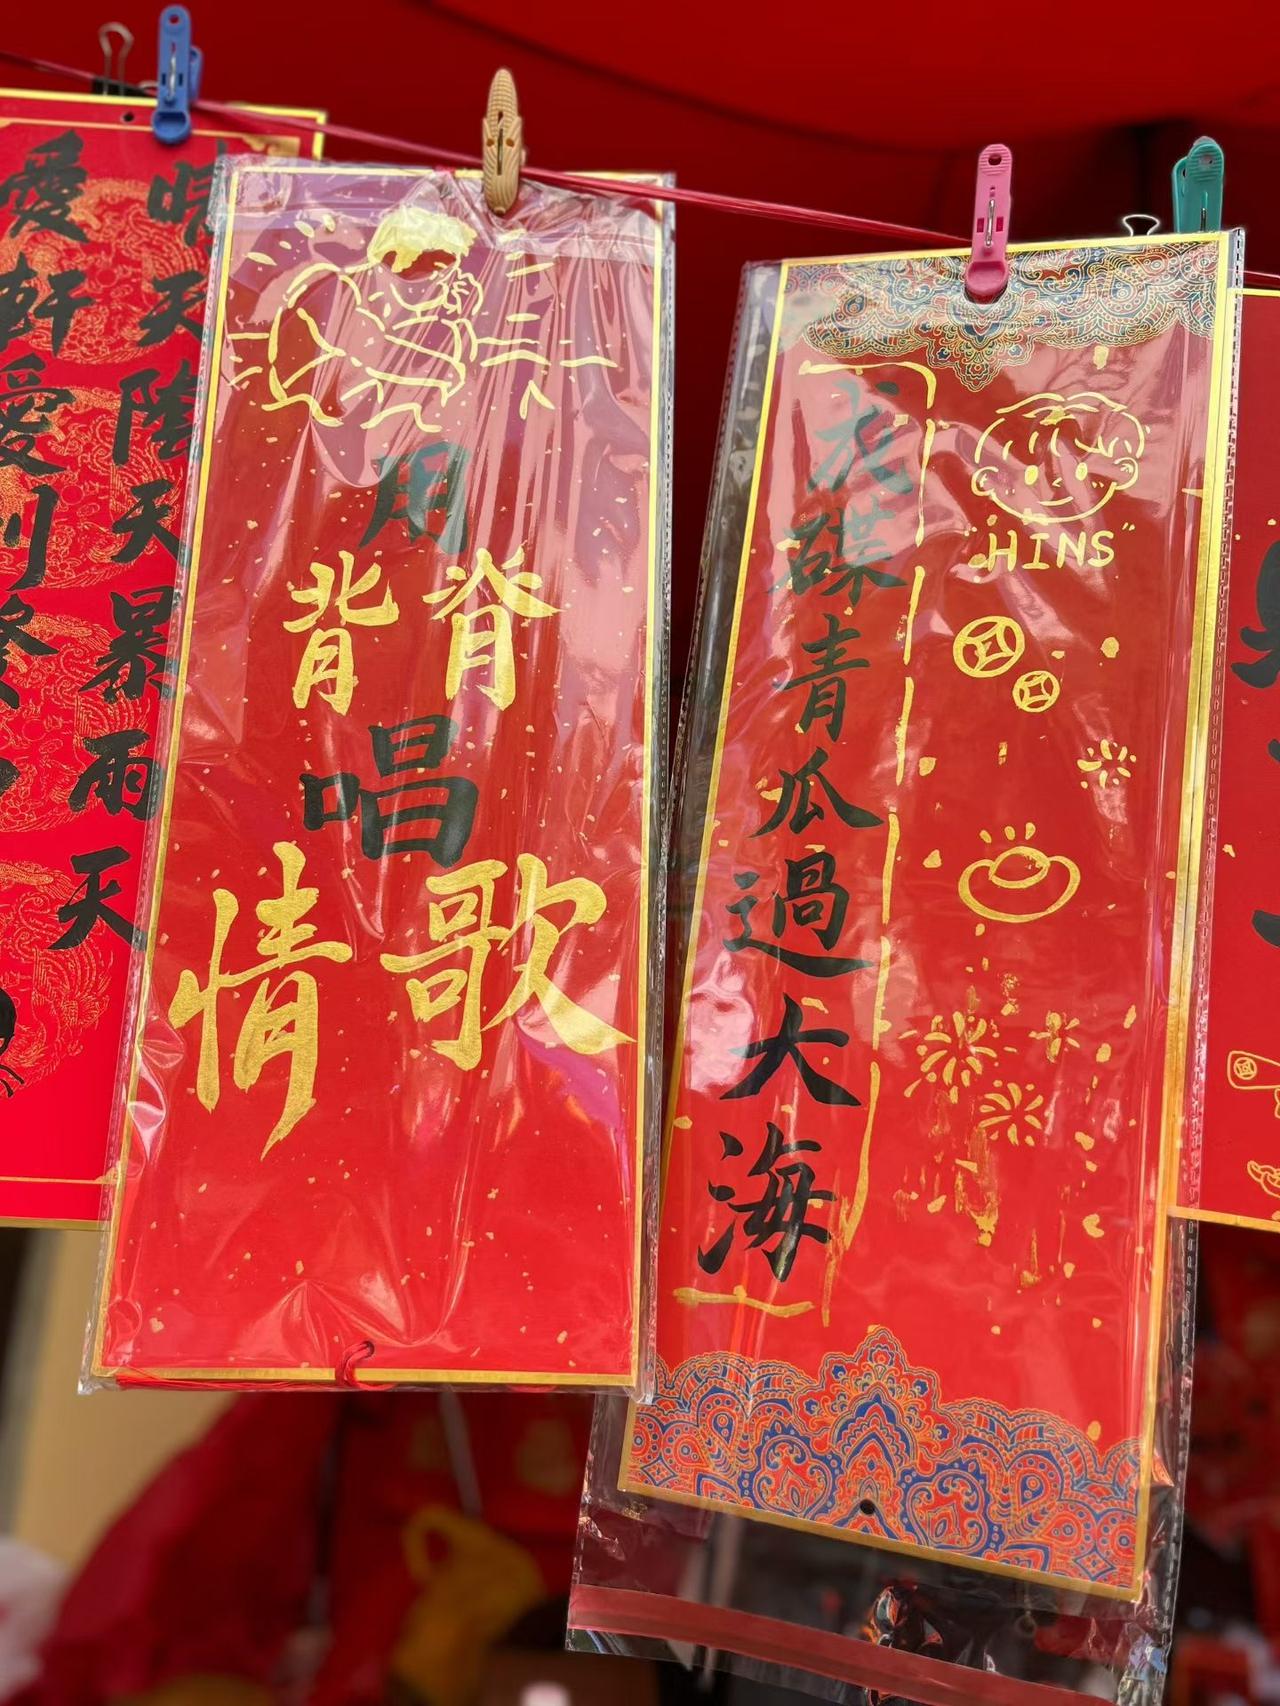 晴天陰天暴雨天
愛軒愛到
用
背脊
唱
情歌
"HINS"
成碟青瓜過大海